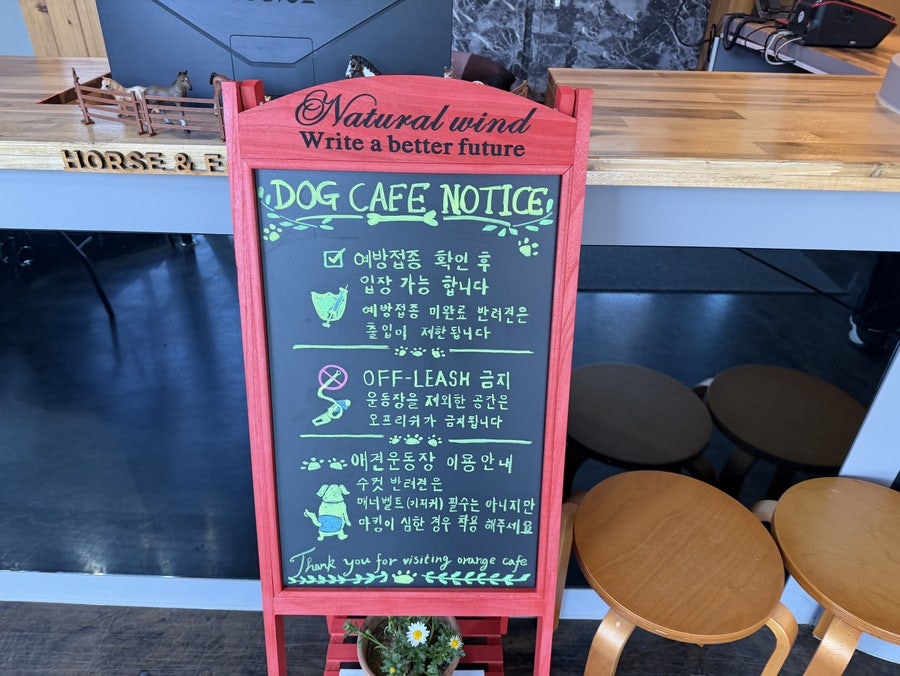 Natural wind
Write a better future
HORSE &
DOG CAFE NOTICE
예방접종 확인 후
입장 가능 합니다
예방접종 미완료 반려견은
출입이 제한됩니다
OFF-LEASH 금지
운동장을 제외한 공간은
오프리쉬가 금지됩니다
애견운동장 이용안내
수컷 반려견은
매너벨트(기저귀) 필수는 아니지만
마킹이 심한 경우 착용 해주세요
Thank you for visiting orange cafe